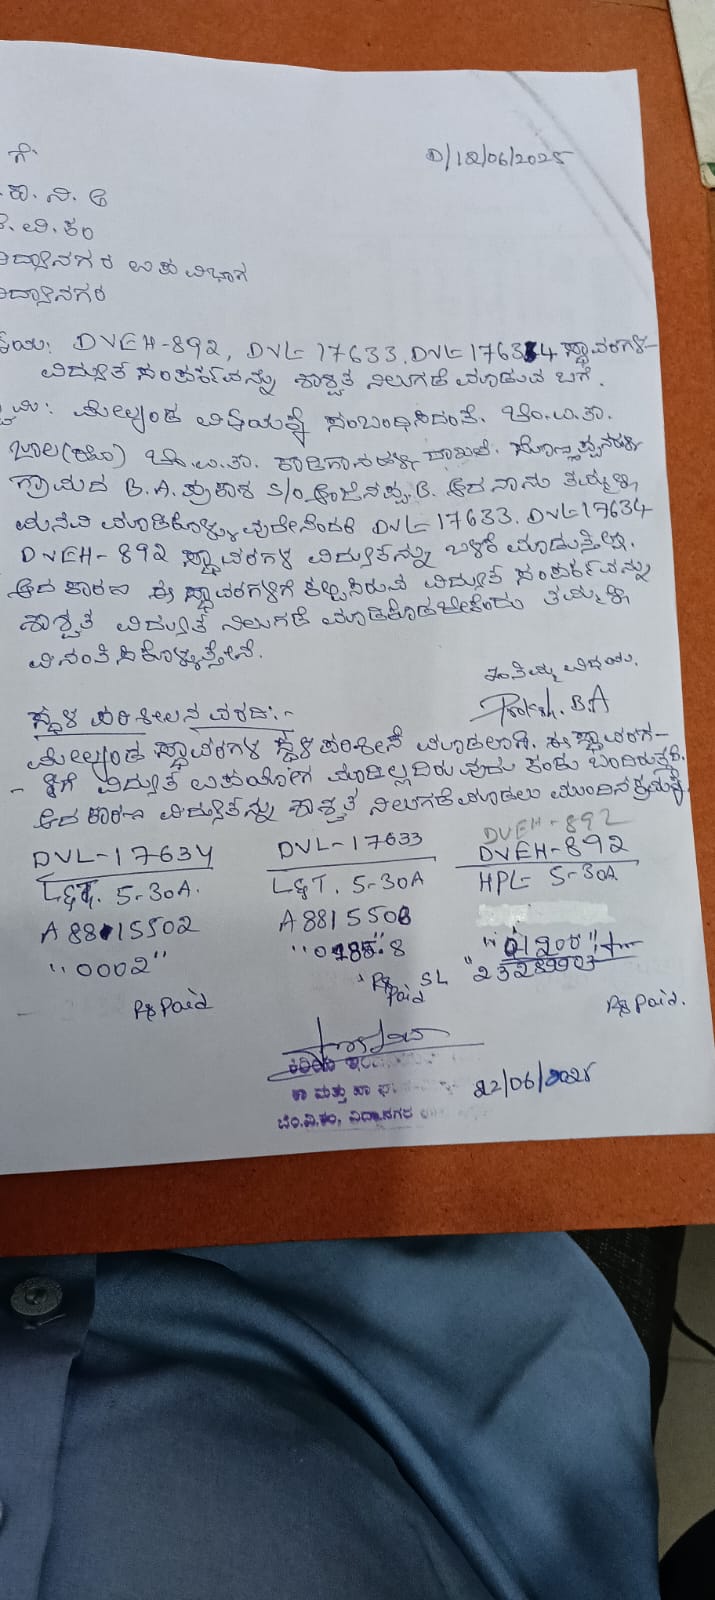 ಗೆ
D/12/06/2025
ಕಾ. ನಿ. ಅ
ವಿ. ಕಂ
ವಿದ್ಯಾನಗರ ಉಪ ವಿಭಾಗ
ವಿದ್ಯಾನಗರ
DVEH-892, DVL-17633. DVL-17634 ಸ್ಥಾವರಗಳ-
ವಿದ್ಯುತ್ ಸಂಪರ್ಕವನ್ನು ಶಾಶ್ವತ ನಿಲುಗಡೆ ಮಾಡುವ ಬಗ್ಗೆ.
ಮೇಲ್ಕಂಡ ವಿಷಯಕ್ಕೆ ಸಂಬಂಧಿಸಿದಂತೆ. ಬೆಂ.ಉ.ತಾ.
ಜಾಲ(ಹೋ) ಬೆಂ.ಉ.ತಾ. ದಾಖಲೆ.
ಗ್ರಾಮದ B.A. ಪ್ರಕಾಶ S/o ಆಂಜಿನಪ್ಪ. B. ಆದ ನಾನು ತಮ್ಮಲ್ಲಿ
ಮನವಿ ಮಾಡಿಕೊಳ್ಳುವುದೇನೆಂದರೆ DVL-17633. DVL-17634
DVEH-892 ಸ್ಥಾವರಗಳ ವಿದ್ಯುತನ್ನು ಬಳಕೆ ಮಾಡುತ್ತಿಲ್ಲ.
ಆದ ಕಾರಣ ಈ ಸ್ಥಾವರಗಳಿಗೆ ಕಲ್ಪಿಸಿರುವ ವಿದ್ಯುತ್ ಸಂಪರ್ಕವನ್ನು
ಶಾಶ್ವತ ವಿದ್ಯುತ್ ನಿಲುಗಡೆ ಮಾಡಿಕೊಡಬೇಕೆಂದು ತಮ್ಮಲ್ಲಿ
ವಿನಂತಿಸಿಕೊಳ್ಳುತ್ತೇನೆ.
ಇಂತಿ ನಿಮ್ಮ ವಿಧೇಯ.
Prakash. B.A
ಸ್ಥಳ ಪರಿಶೀಲನ ವರದಿ:-
ಮೇಲ್ಕಂಡ ಸ್ಥಾವರಗಳ ಸ್ಥಳ ಪರಿಶೀಲನೆ ಮಾಡಲಾಗಿ. ಈ ಸ್ಥಾವರಗ-
- ಳಿಗೆ ವಿದ್ಯುತ್ ಉಪಯೋಗ ಮಾಡಿಲ್ಲದಿರುವುದು ಕಂಡು ಬಂದಿರುತ್ತದೆ.
ಆದ ಕಾರಣ ವಿದ್ಯುತನ್ನು ಶಾಶ್ವತ ನಿಲುಗಡೆ ಮಾಡಲು ಮುಂದಿನ ಕ್ರಮಕ್ಕೆ
DVEH-892
DVL-17634 DVL-17633 DVEH-892
L&T. 5-30A. L&T. 5-30A HPL 5-30A
A8815502 A8815508
"0002" "01200"
SL "23289903
Rs Paid Rs Paid Rs Paid.
22/06/2025
ಬೆಂ.ವಿ.ಕಂ, ವಿದ್ಯಾನಗರ